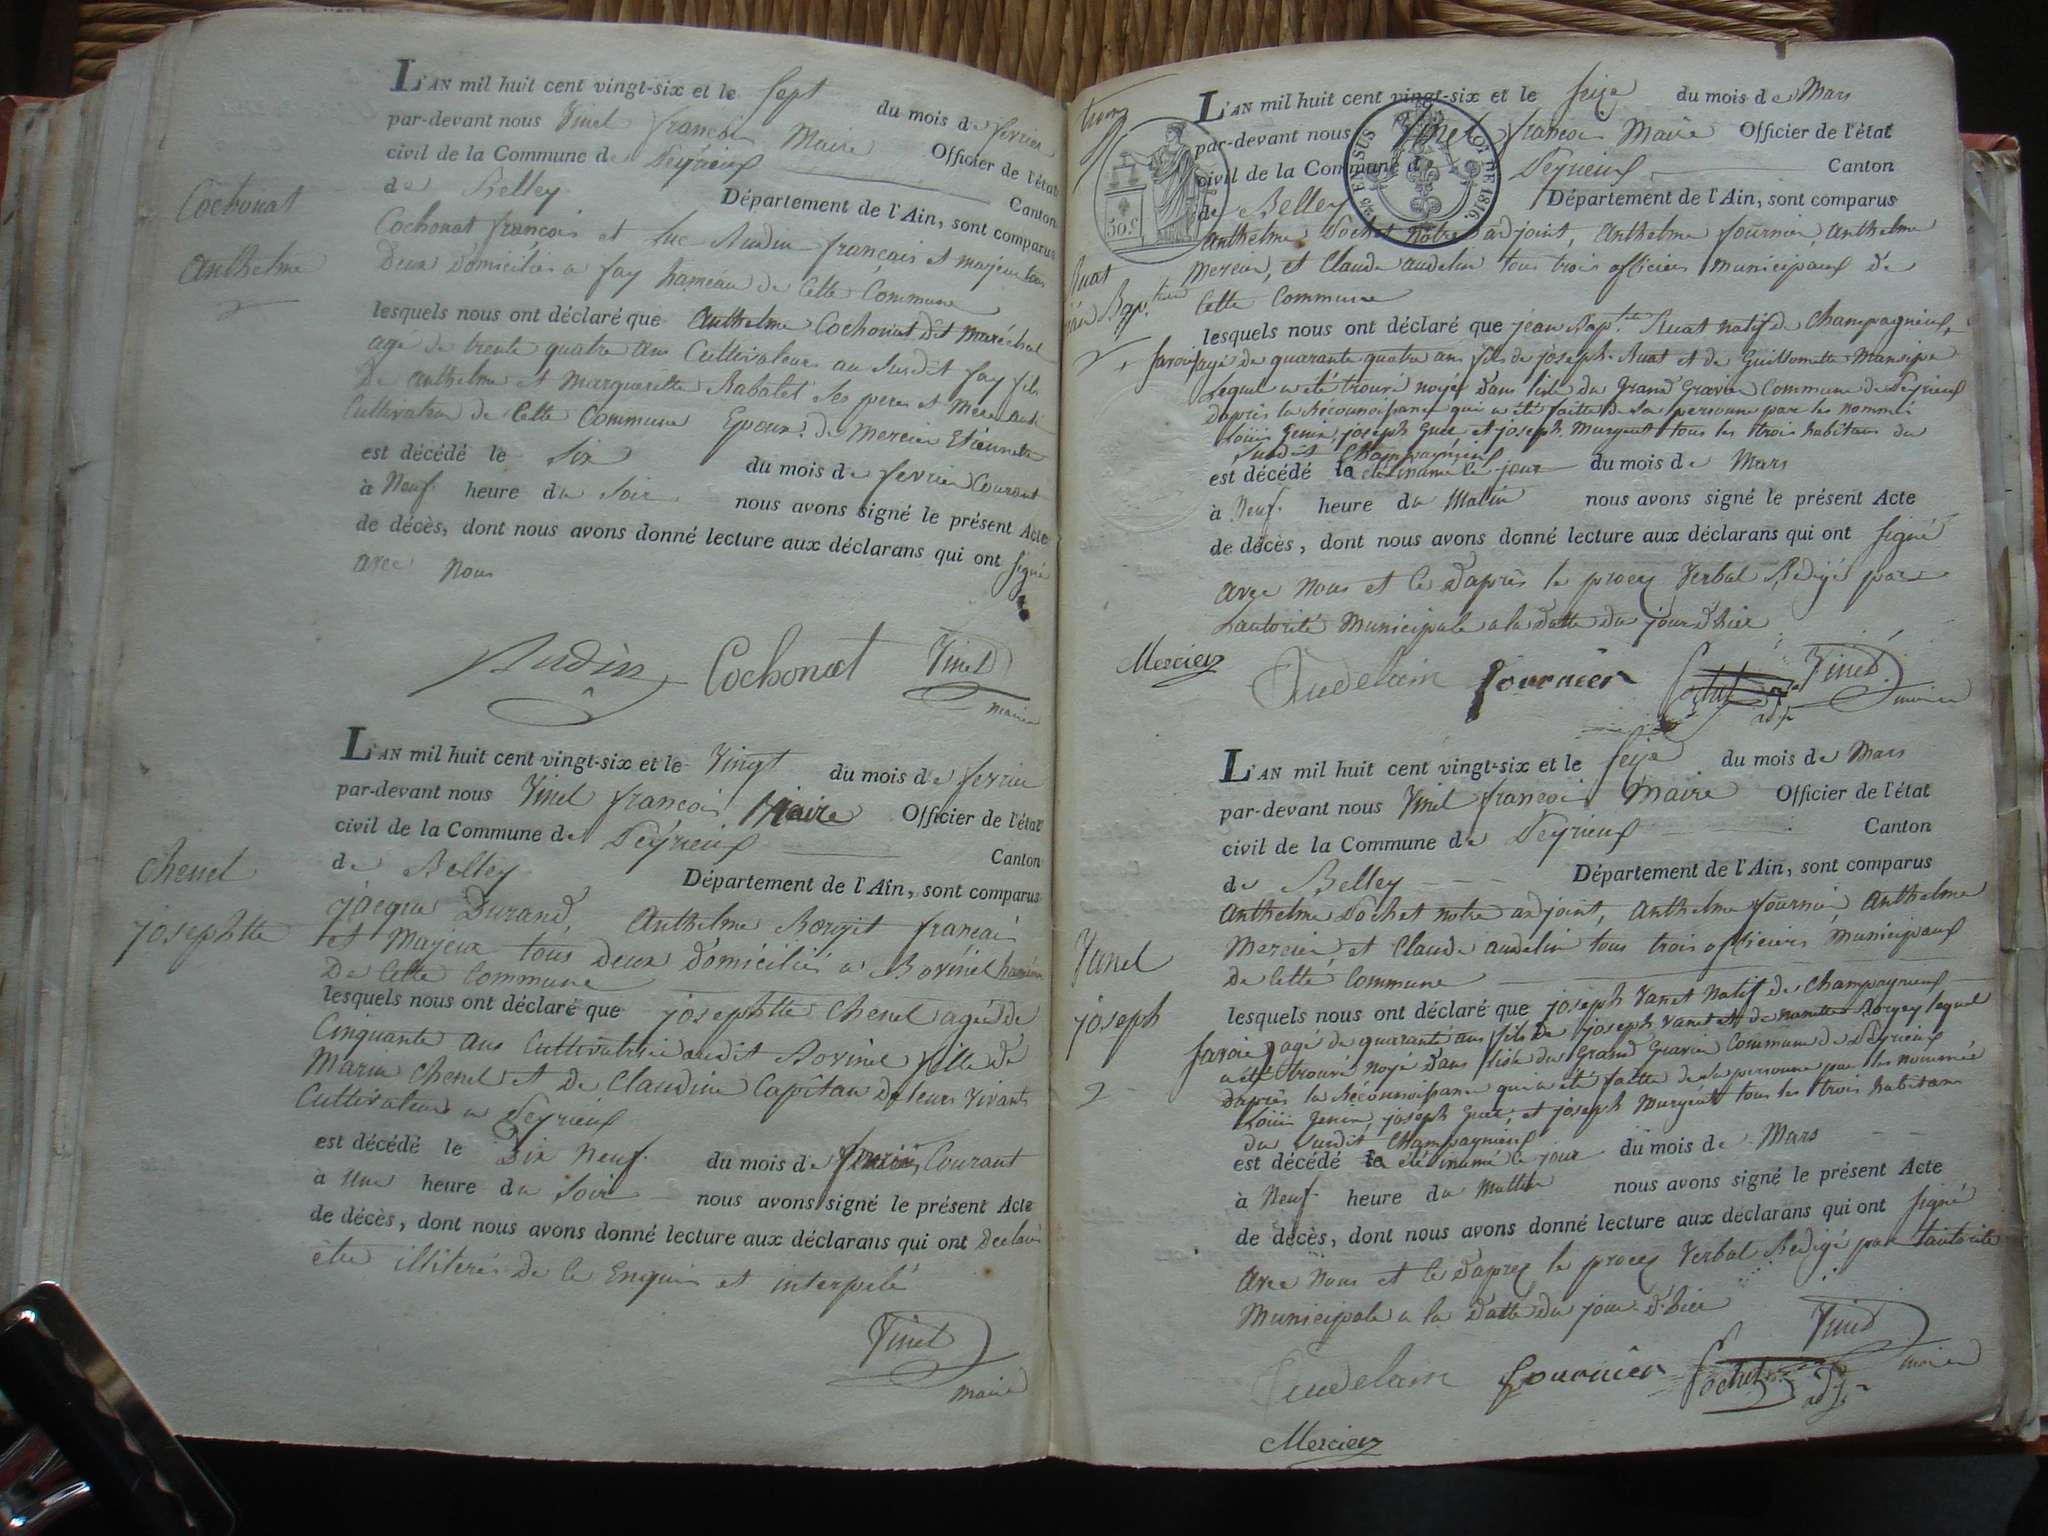 Cochonat
Anthelme
L'AN mil huit cent vingt-six et le Sept du mois de fevrier
par-devant nous Vinet françois Maire Officier de l'état
civil de la Commune de Peyrieux Canton
de Belley Département de l'Ain, sont comparus
Cochonat françois et Luc Audin français et majeur tous
Deux Domiciliés a fay hameau de Cette Commune
lesquels nous ont déclaré que Anthelme Cochonat dit Maréchal
agé de trente quatre ans Cultivateur au Susdit fay fils
De Anthelme et Margueritte Rabatel Ses pere et Mere
Cultivateur de Cette Commune Epoux de Mercier Etiennette
est décédé le Six du mois de fevrier Courant
à Neuf heure du Soir nous avons signé le présent Acte
de décès, dont nous avons donné lecture aux déclarans qui ont signé
avec Nous
Audin Cochonat Vinet
maire
Chenel
josephtte
L'AN mil huit cent vingt-six et le Vingt du mois de fevrier
par-devant nous Vinet françois Maire Officier de l'état
civil de la Commune de Peyrieux Canton
de Belley Département de l'Ain, sont comparus
jacque Durand, Anthelme francais
et Majeur tous Deux Domiciliés a Bovinel hameau
De Cette Commune
lesquels nous ont déclaré que josephtte Chenel agée de
Cinquante ans Cultivatrice audit Bovinel fille de
Marin Chenel et De Claudine Capitan De leurs Vivants
Cultivateur a Peyrieux
est décédé le Dix Neuf du mois de fevrier Courant
à Une heure du Soir nous avons signé le présent Acte
de décès, dont nous avons donné lecture aux déclarans qui ont Declaré
être illiterés De Ce Enquis et interpelé
Vinet
maire
50 C.
LOI DE 1816.
EN SUS
Ruat
jean Bap.tte
L'AN mil huit cent vingt-six et le Seize du mois de Mars
par-devant nous Vinet françois Maire Officier de l'état
civil de la Commune de Peyrieux Canton
de Belley Département de l'Ain, sont comparus
Anthelme Pochet Notre adjoint, Anthelme fournier, Anthelme
Mercier, et Claude audelin tous trois officiers Municipaux de
Cette Commune
lesquels nous ont déclaré que jean Bap.tte Ruat natif de Champagneux
Savoie agé de quarante quatre ans fils de joseph Ruat et de Guillomette Mansipe
Lequel a été trouvé noyée Dans Lisle du Grand Gravier Commune de Peyrieux
Daprès la Réconnoissance qui a été faitte de sa personne par les nommés
Louis Genin, joseph Guer et joseph Murgeat tous les trois habitans du
Susdit Champagneux
est décédé la été inumé Ce jour du mois de Mars
à Neuf heure du Matin nous avons signé le présent Acte
de décès, dont nous avons donné lecture aux déclarans qui ont signé
avec Nous et Ce Daprès le procez Verbal Redigé par
Lautorité Municipale a la Datte Du jour D'hier
Mercier Audelain fournier Pochet adj. Vinet
maire
Vanel
joseph
L'AN mil huit cent vingt-six et le Seize du mois de Mars
par-devant nous Vinet françois Maire Officier de l'état
civil de la Commune de Peyrieux Canton
de Belley Département de l'Ain, sont comparus
Anthelme Pochet notre adjoint, Anthelme fournier, Anthelme
Mercier, et Claude audelin tous trois officiers Municipaux
De Cette Commune
lesquels nous ont déclaré que joseph Vanel Natif de Champagneux
Savoie agé de quarante ans fils De joseph Vanel et de lequel
a été trouvé noyé Dans lisle du Grand Gravier Commune de Peyrieux
Daprès la Réconnoissance qui a été faitte de sa personne par les nommée
Louis Genin, joseph Guer, et joseph Murgeat tous les trois habitans
du susdit Champagneux
est décédé la été inumé Ce jour du mois de Mars
à Neuf heure du Mattin nous avons signé le présent Acte
de décès, dont nous avons donné lecture aux déclarans qui ont signé
avec Nous et Ce Daprez le procez Verbal Redigé par Lautorité
Municipale a la Datte Du jour D'hier
Audelain fournier Pochet adj. Vinet
maire
Mercier